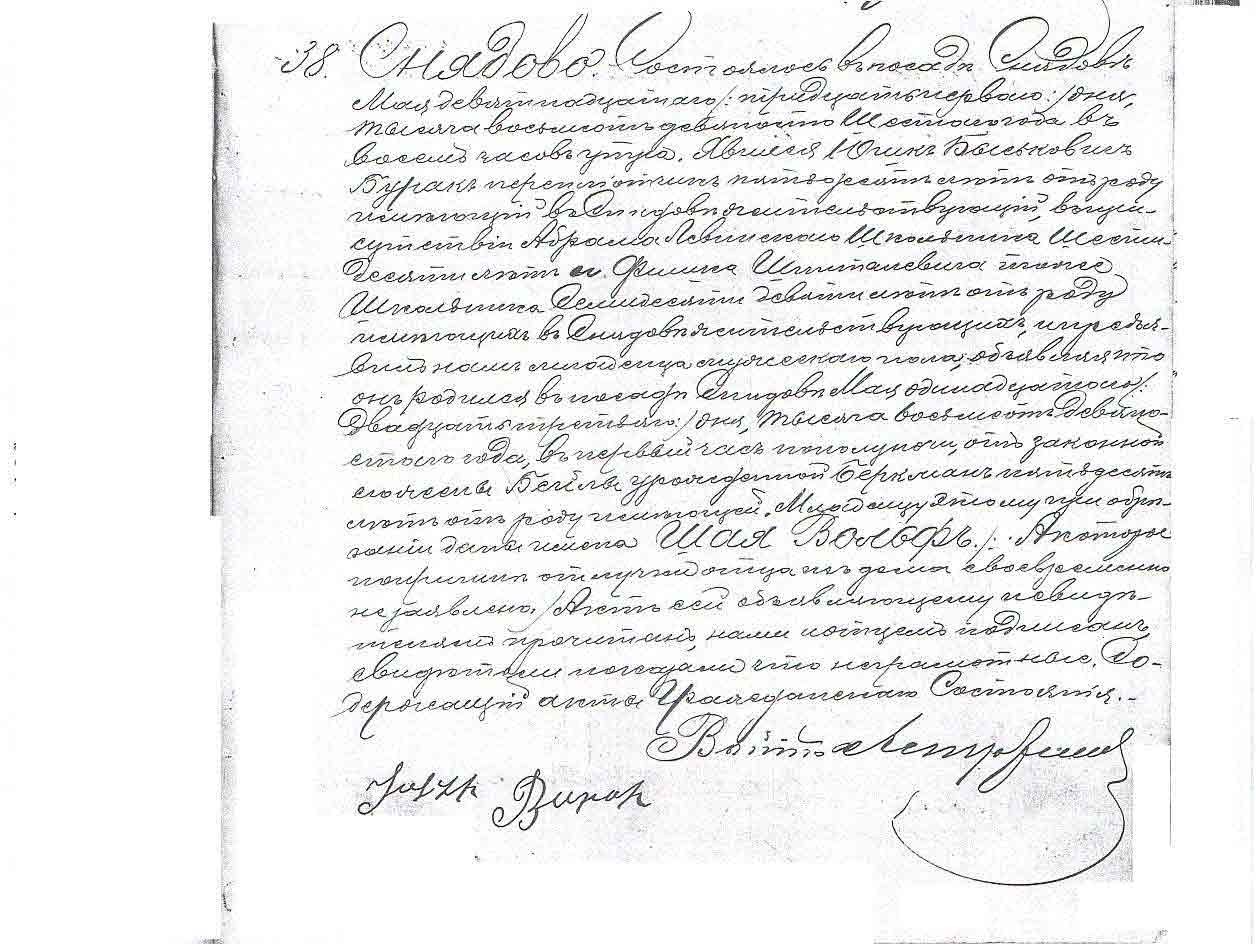 38. Снядово. Состоялось въ посадѣ Снядовѣ
Мая девятнадцатаго /: тридцать перваго :/ дня,
тысяча восемьсотъ девяносто шестого года въ
восемь часовъ утра. Явился Юшкъ Быськовичъ
Буракъ переплетчикъ пятьдесятъ лѣтъ отъ роду
имѣющій въ Снядовѣ жительствующій, въ при-
сутствіи Абрама Левинскаго Школьника шести-
десяти лѣтъ и Шпиталевича тоже
Школьника семидесяти девяти лѣтъ отъ роду
имѣющихъ въ Снядовѣ жительствующихъ, и предъя-
вилъ намъ младенца мужескаго пола, объявляя что
онъ родился въ посадѣ Снядовѣ Мая одинадцатаго /:
двадцать третьяго :/ дня, тысяча восемьсотъ девяно-
стого года, въ первый часъ пополуночи, отъ законной
его жены Бейлы урожденной Беркманъ пятьдесятъ
лѣтъ отъ роду имѣющей. Младенцу этому при обрѣ-
заніи дано имя Шая Вольфъ. /: Акт которое
по причинѣ отлучки отца изъ дома своевременно
не заявлено. / Актъ сей объявляющему и свидѣ-
телямъ прочитанъ, нами и отцемъ подписанъ,
свидѣтели показали что неграмотные. Со-
держащій акты Гражданскаго Состоянія.
Войтъ
Joszk Burak